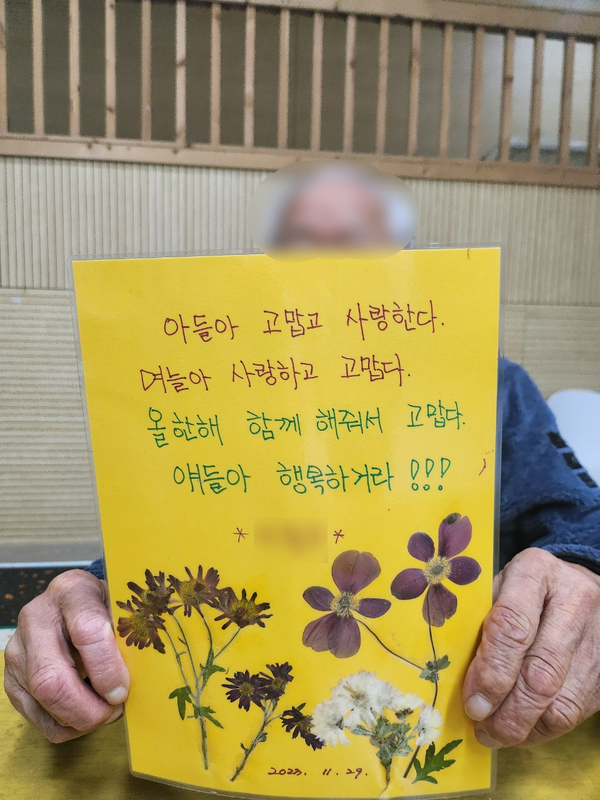 아들아 고맙고 사랑한다.
며늘아 사랑하고 고맙다.
올한해 함께 해줘서 고맙다.
얘들아 행복하거라 !!!
* *
2023. 11. 29.